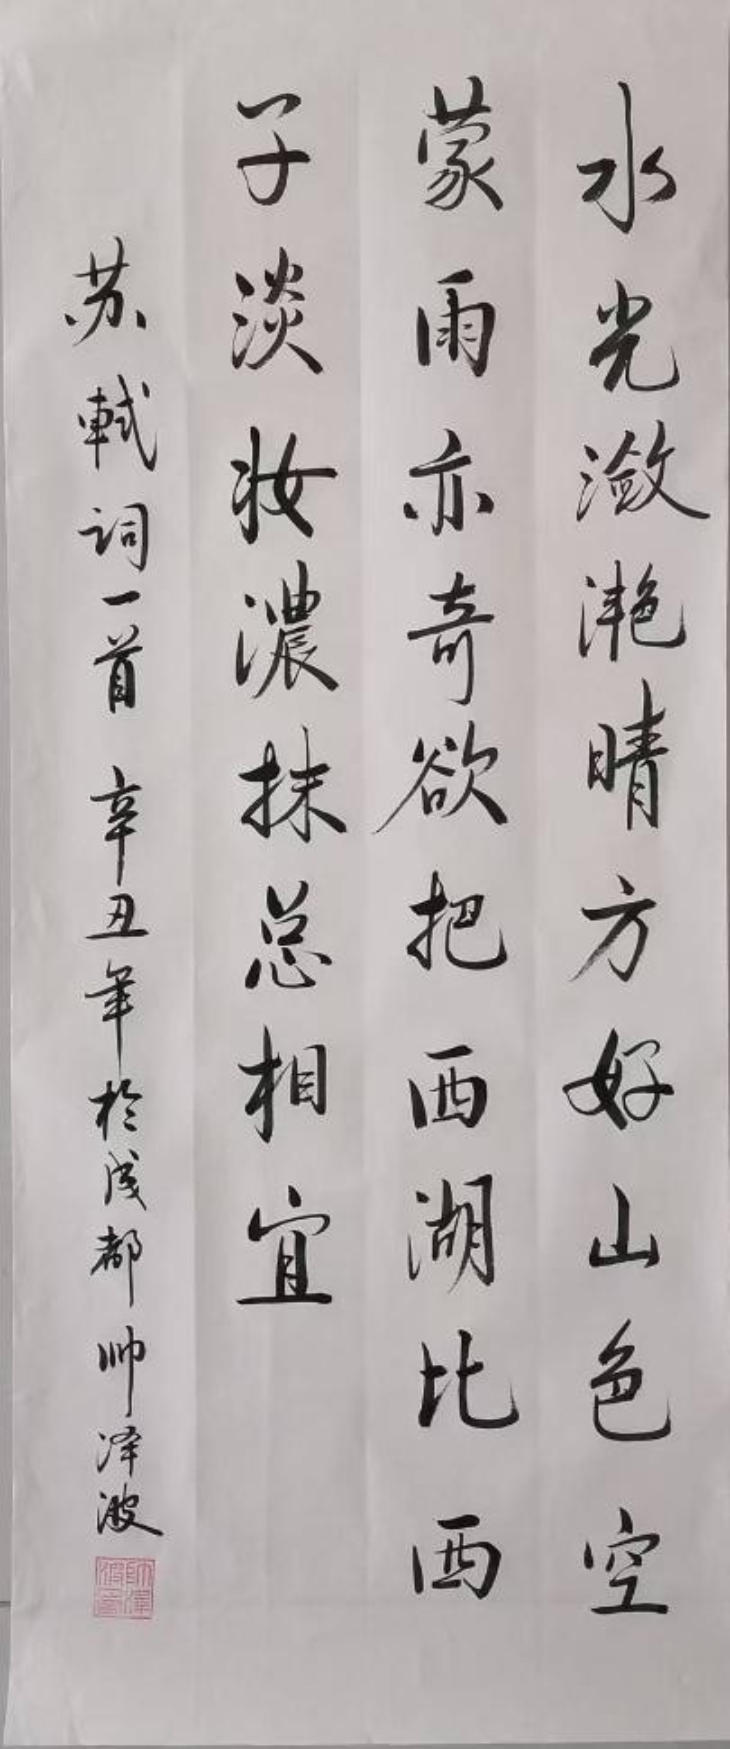 水光潋滟晴方好山色空
蒙雨亦奇欲把西湖比西
子淡妆濃抹总相宜
苏軾词一首 辛丑年於成都 帅泽波